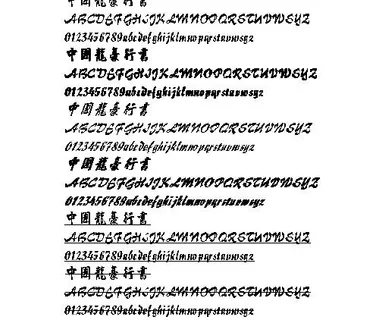 中國龍豪行書
ABCDEFGHIJKLMNOPQRSTUVWXYZ
0123456789abcdefghijklmnopqrstuvwxyz
中國龍豪行書
ABCDEFGHIJKLMNOPQRSTUVWXYZ
0123456789abcdefghijklmnopqrstuvwxyz
中國龍豪行書
ABCDEFGHIJKLMNOPQRSTUVWXYZ
0123456789abcdefghijklmnopqrstuvwxyz
中國龍豪行書
ABCDEFGHIJKLMNOPQRSTUVWXYZ
0123456789abcdefghijklmnopqrstuvwxyz
中國龍豪行書
ABCDEFGHIJKLMNOPQRSTUVWXYZ
0123456789abcdefghijklmnopqrstuvwxyz
中國龍豪行書
ABCDEFGHIJKLMNOPQRSTUVWXYZ
0123456789abcdefghijklmnopqrstuvwxyz